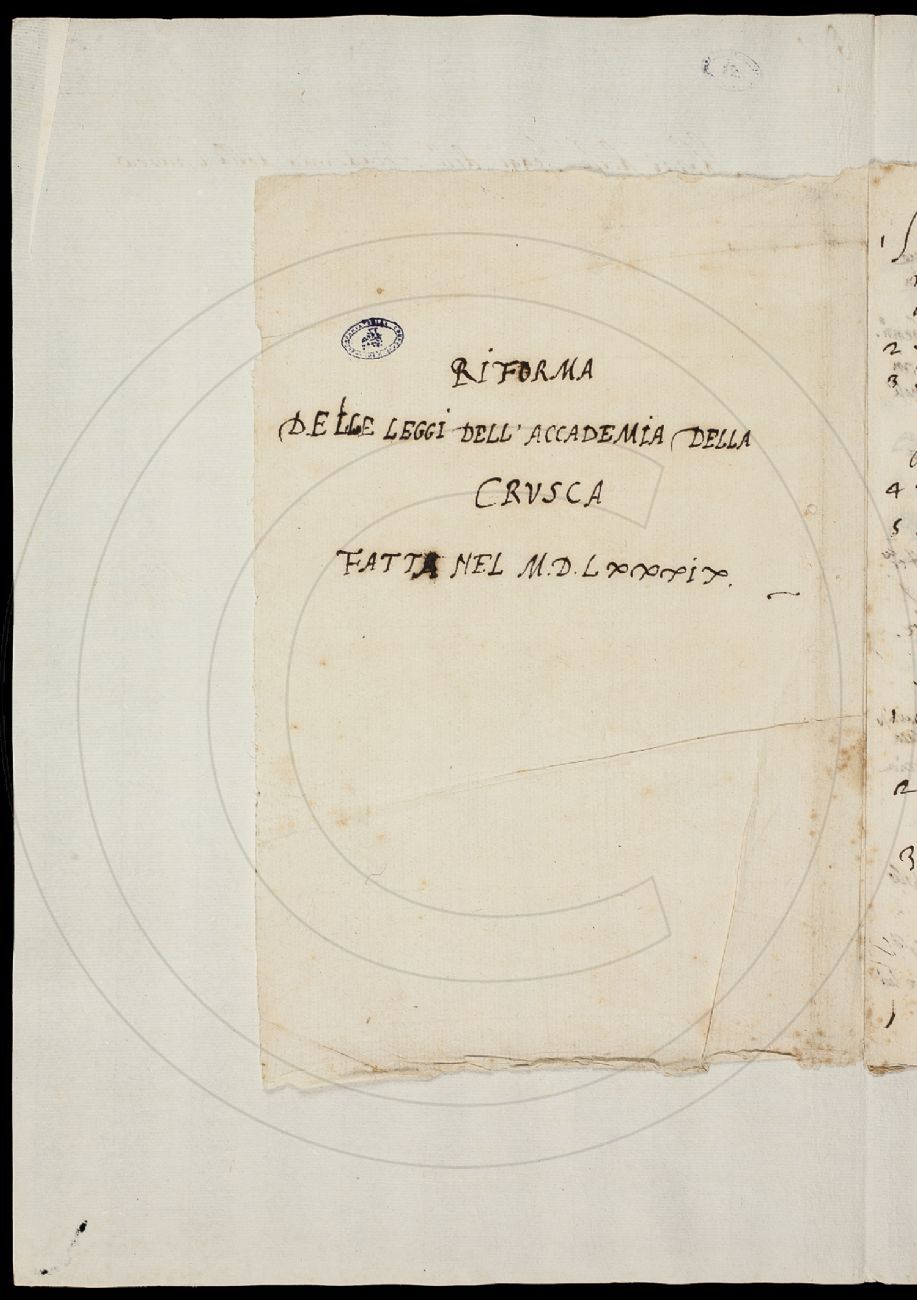 RIFORMA
DELLE LEGGI DELL' ACCADEMIA DELLA
CRVSCA
FATTA NEL M.D.LXXXIX.
1
2
3
4
5
1
2
3